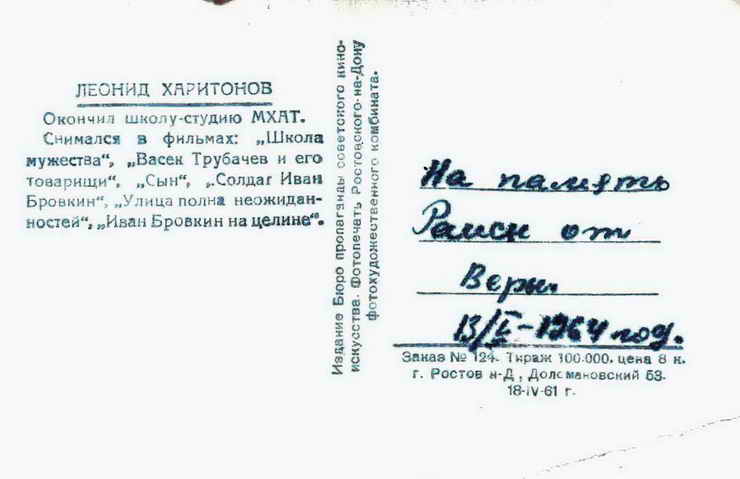 ЛЕОНИД ХАРИТОНОВ
Окончил школу-студию МХАТ.
Снимался в фильмах: „Школа
мужества“, „Васек Трубачев и его
товарищи“, „Сын“, „Солдат Иван
Бровкин“, „Улица полна неожидан-
ностей“, „Иван Бровкин на целине“.
Издание Бюро пропаганды советского кино-
искусства. Фотопечать Ростовского-на-Дону
фотохудожественного комбината.
На память
Раисы от
Веры.
13/V-1964 год.
Заказ № 124. Тираж 100.000. цена 8 к.
г. Ростов н-Д, Доломановский 53.
18-IV-61 г.